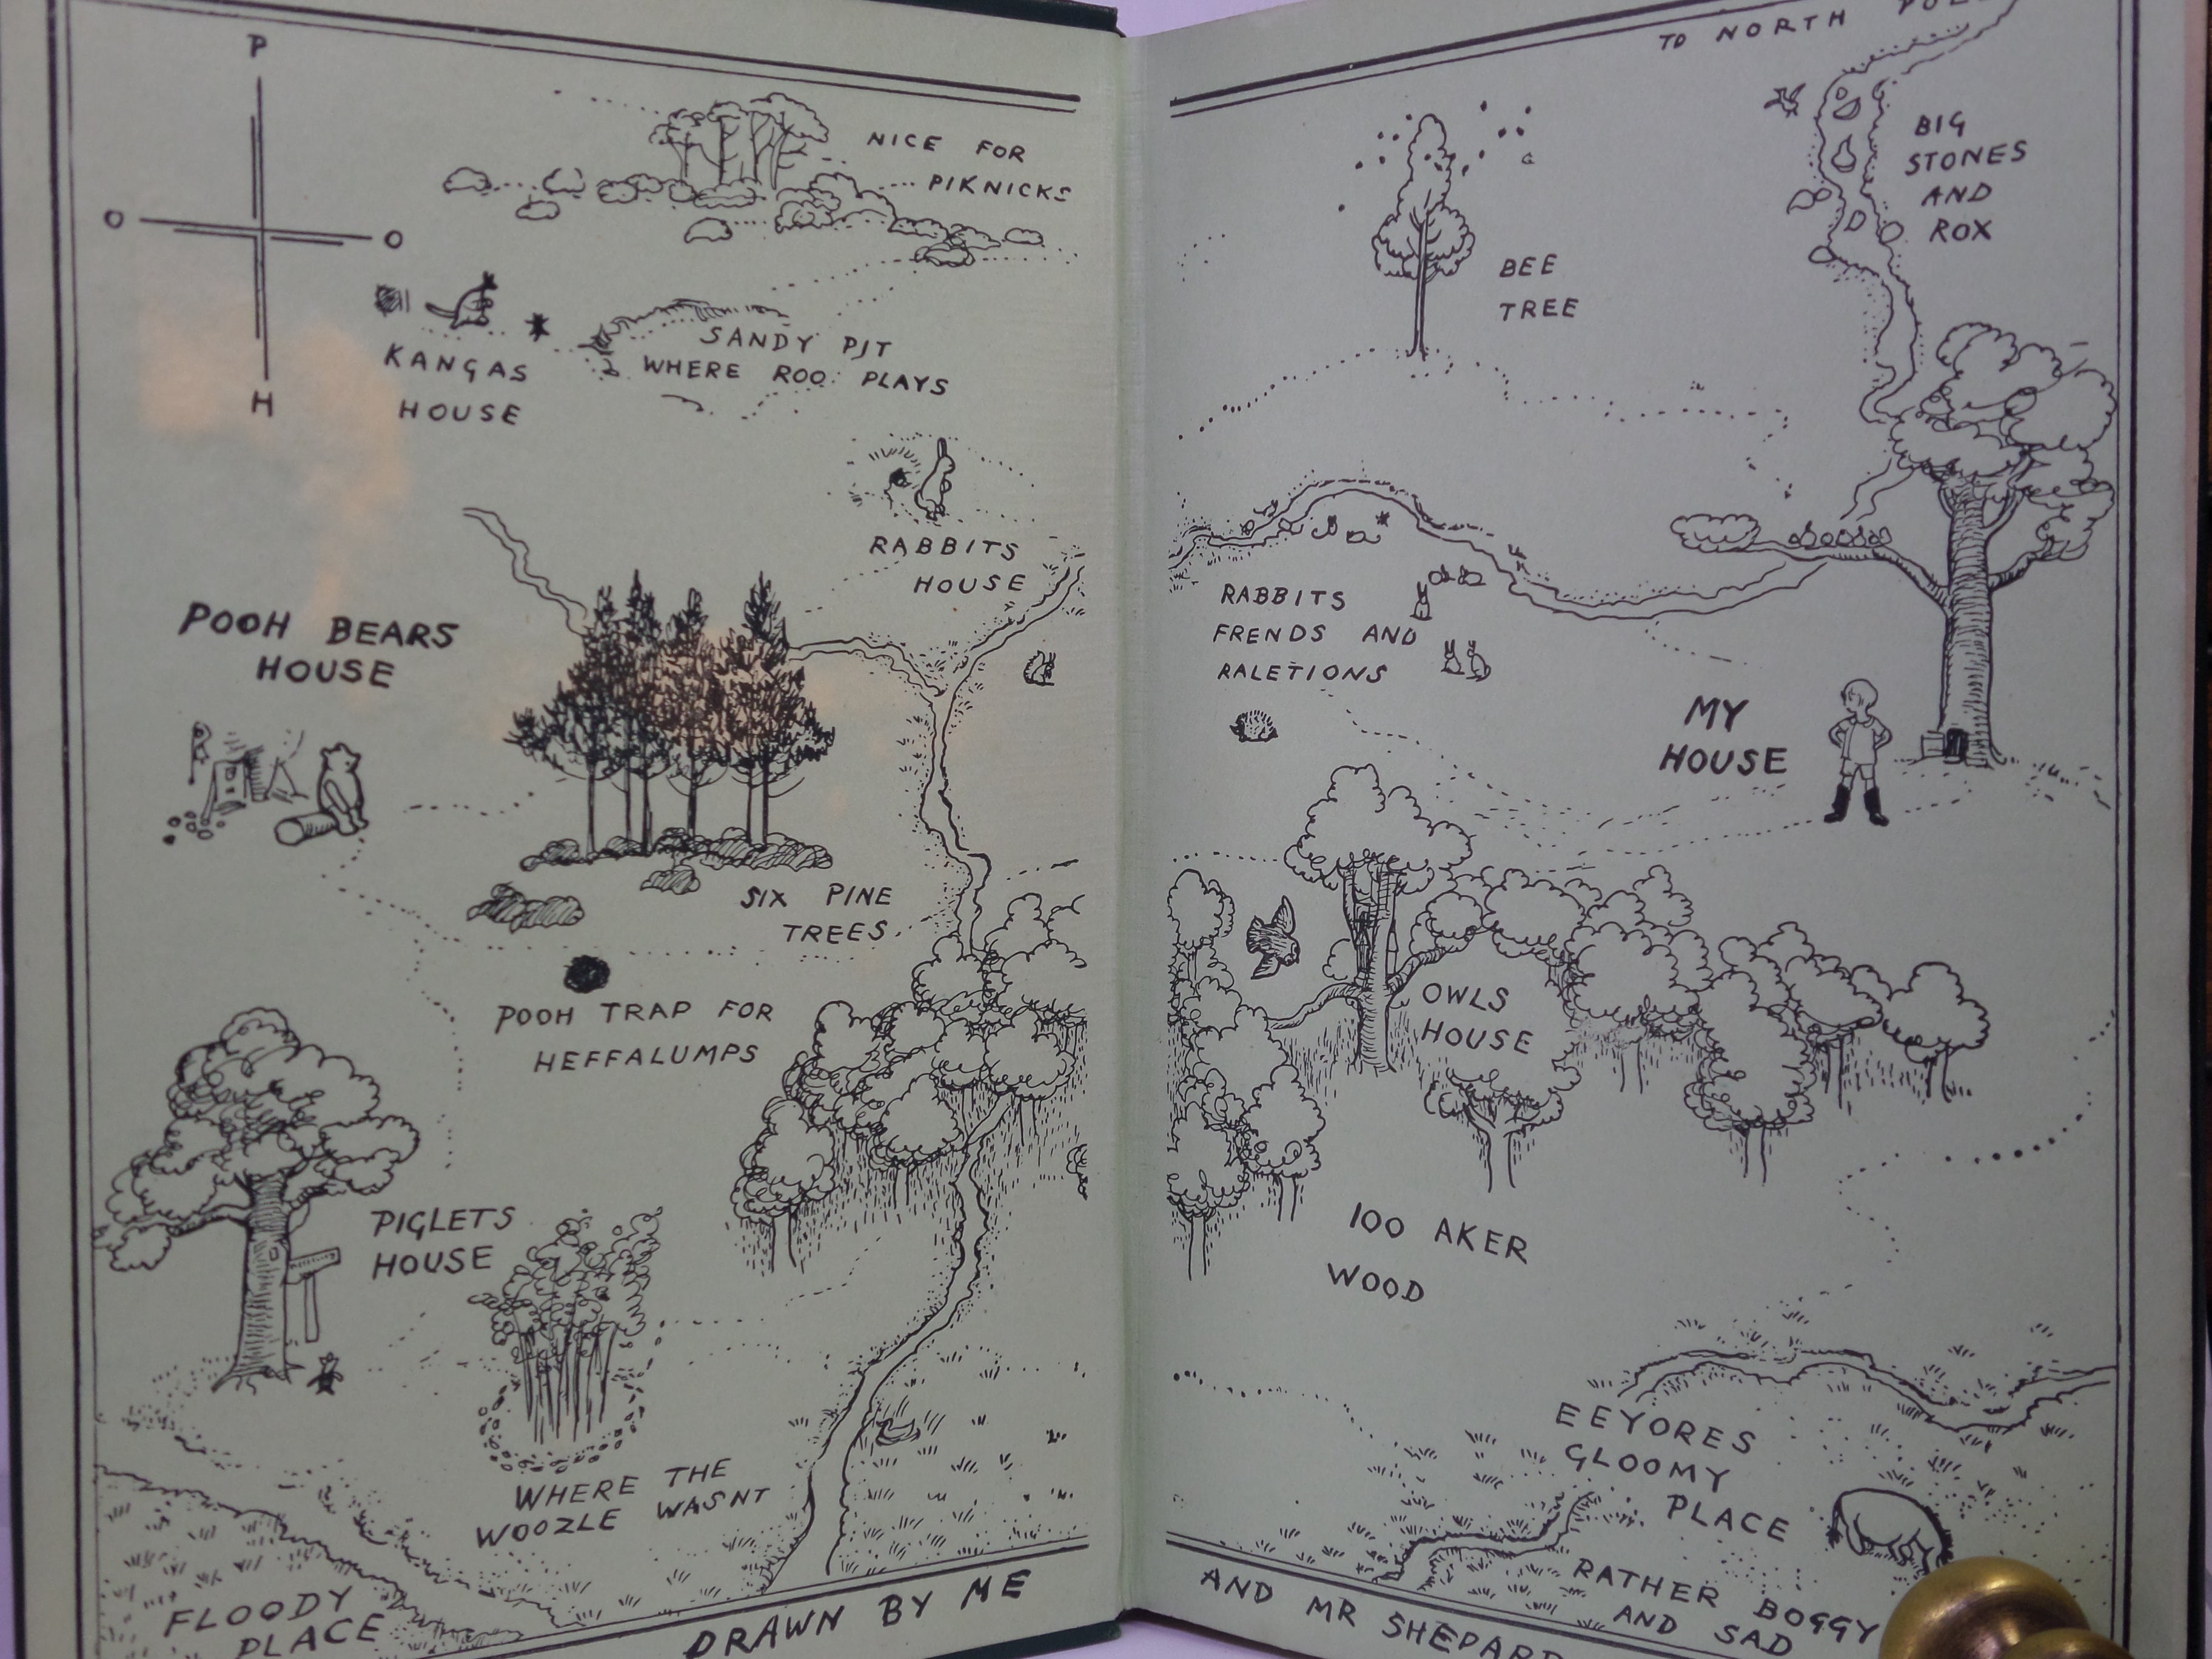 P
O
O
H
NICE FOR
PIKNICKS
KANGAS
HOUSE
SANDY PIT
WHERE ROO PLAYS
RABBITS
HOUSE
POOH BEARS
HOUSE
SIX PINE
TREES
POOH TRAP FOR
HEFFALUMPS
PIGLETS
HOUSE
WHERE THE
WOOZLE WASNT
FLOODY
PLACE
DRAWN BY ME
TO NORTH POLE
BIG
STONES
AND
ROX
BEE
TREE
RABBITS
FRENDS AND
RALETIONS
MY
HOUSE
OWLS
HOUSE
100 AKER
WOOD
EEYORES
GLOOMY
PLACE
RATHER BOGGY
AND SAD
AND MR SHEPARD